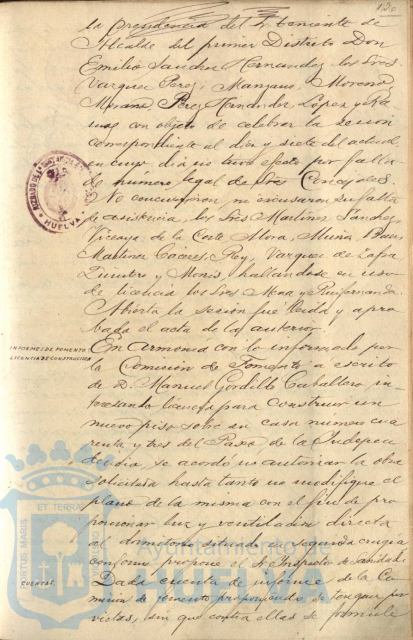 126
la presidencia del 2º teniente de
Alcalde del primer Distrito Don
Emilio Sanchez Hernandez los Sres
Vazquez Perez, Manzano, Moreno
Perez, Hernandez Lopez y
con objeto de celebrar la sesion
correspondiente al dia diez y siete del actual,
en cuyo dia no tuvo efecto por falta
de número legal de Sres Concejales.
No concurrieron, ni escusaron su falta
de asistencia, los Sres Martinez Sanchez,
de la Corte Mora, Muñiz
Martinez Rey, Vazquez de Zafra
Quintero y hallandose en uso
de licencia los Sres Mora y
Abierta la sesion fué leida y apro-
bada el acta de la anterior.
INFORMES DE FOMENTO
LICENCIA DE CONSTRUCCION
En armonia con lo informado por
la Comision de Fomento á escrito
de D. Manuel Gordillo Caballero in-
teresando licencia para construir un
nuevo piso sobre su casa numero cua-
renta y tres del Paseo de la Indepen-
dencia, se acordó no autorizar la obra
solicitada hasta tanto no modifique el
plano de la misma con el fin de pro-
porcionar luz y ventilacion directa
al dormitorio situado en segunda crugia
conforme propone el Sr Inspector de Sanidad.
CUENTAS.
Dada cuenta de informe de la Co-
mision de fomento proponiendo se
vistas, sin que contra ellas se formule
HUELVA
PORTUS MARIS ET TERRAE
Ayuntamiento de